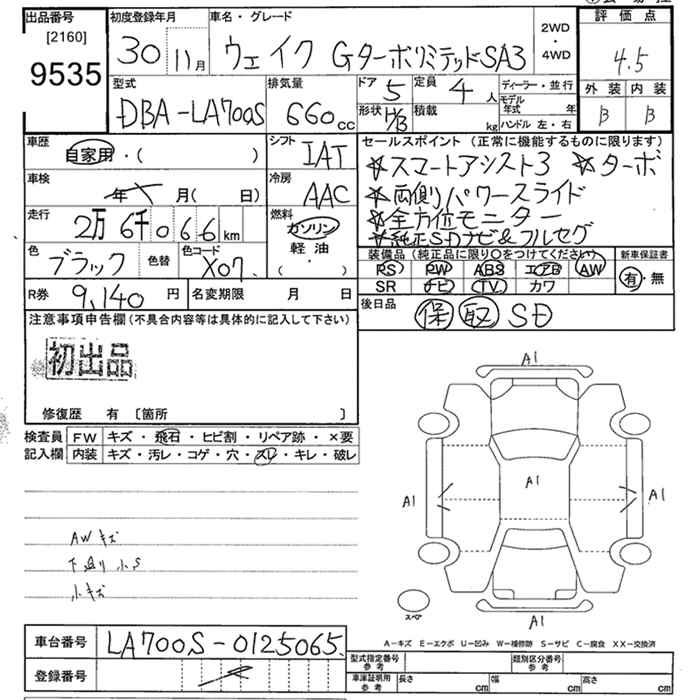 出品番号
[2160]
9535
初度登録年月
30 11月
車名・グレード
ウェイク GターボリミテッドSA3
2WD
・
4WD
評価点
4.5
外装 内装
B B
型式
DBA-LA700S
排気量
660cc
ドア 5
定員 4人
形状 H/B
積載 kg
ディーラー・並行
モデル年式 年
ハンドル 左・右
車歴
自家用・( )
シフト
IAT
車検
年 月( 日)
冷房
AAC
走行
2万 6千 0 6 6 km
燃料
ガソリン
軽油
・( )
色
ブラック
色替
色コード
X07
R券
9,140円
名変期限 月 日
セールスポイント(正常に機能するものに限ります)
☆スマートアシスト3 ☆ターボ
☆両側パワースライド
☆全方位モニター
☆純正SDナビ&フルセグ
装備品(純正品に限り○をつけてください)
新車保証書
PS PW ABS エアB AW
SR ナビ TV カワ
有・無
後日品
保 取 SD
注意事項申告欄(不具合内容等は具体的に記入して下さい)
初出品
修復歴 有 〔箇所 〕
検査員
記入欄
FW キズ・飛石・ヒビ割・リペア跡・×要
内装 キズ・汚レ・コゲ・穴・スレ・キレ・破レ
AWキズ
下廻り小S
小キズ
A1
A1
A1
A1
A1
スペア
A-キズ E-エクボ U-凹み W-補修跡 S-サビ C-腐食 XX-交換済
車台番号
LA700S-0125065
登録番号
型式指定番号
参考
類別区分番号
参考
車庫証明用
参考
長さ cm
幅 cm
高さ cm